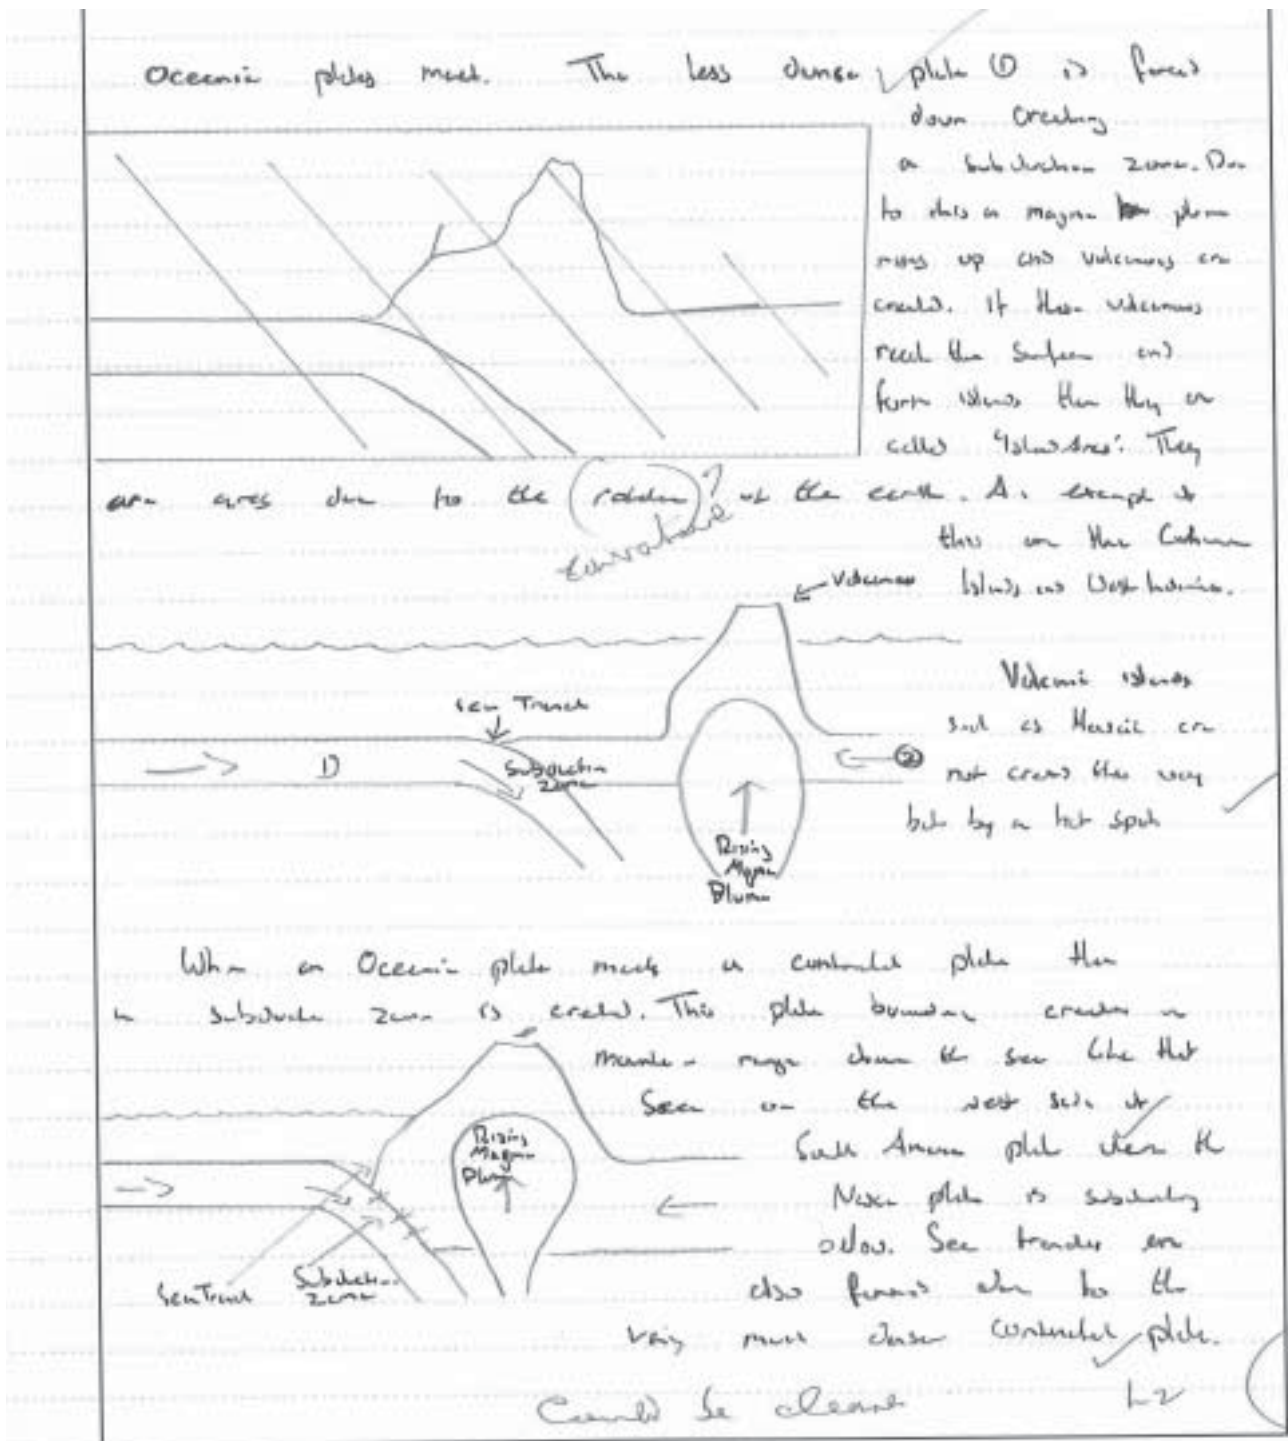 Oceanic plates meet. The less dense, plate ① is forced
down creating
a subduction zone. Due
to this a magma plume
rises up and volcanoes are
created. If these volcanoes
reach the surface and
form islands then they are
called "Island Arcs". They
are arcs due to the rotation ? of the earth. An example of
curvature
this are the
Islands and West Indies.
Volcanoes
Volcanic islands
such as Hawaii are
not created this way
but by a hot spot
Sea Trench
1)
Subduction
Zone
②
Rising
Magma
Plume
When an Oceanic plate meets a continental plate then
a subduction zone is created. This plate boundary creates a
mountain range down the sea like that
seen on the west side of
South America plate where the
Nazca plate is subducting
below. Sea trenches are
also formed due to the
very much denser continental plate.
Rising
Magma
Plume
Sea Trench
Subduction
Zone
Could be clearer
L2